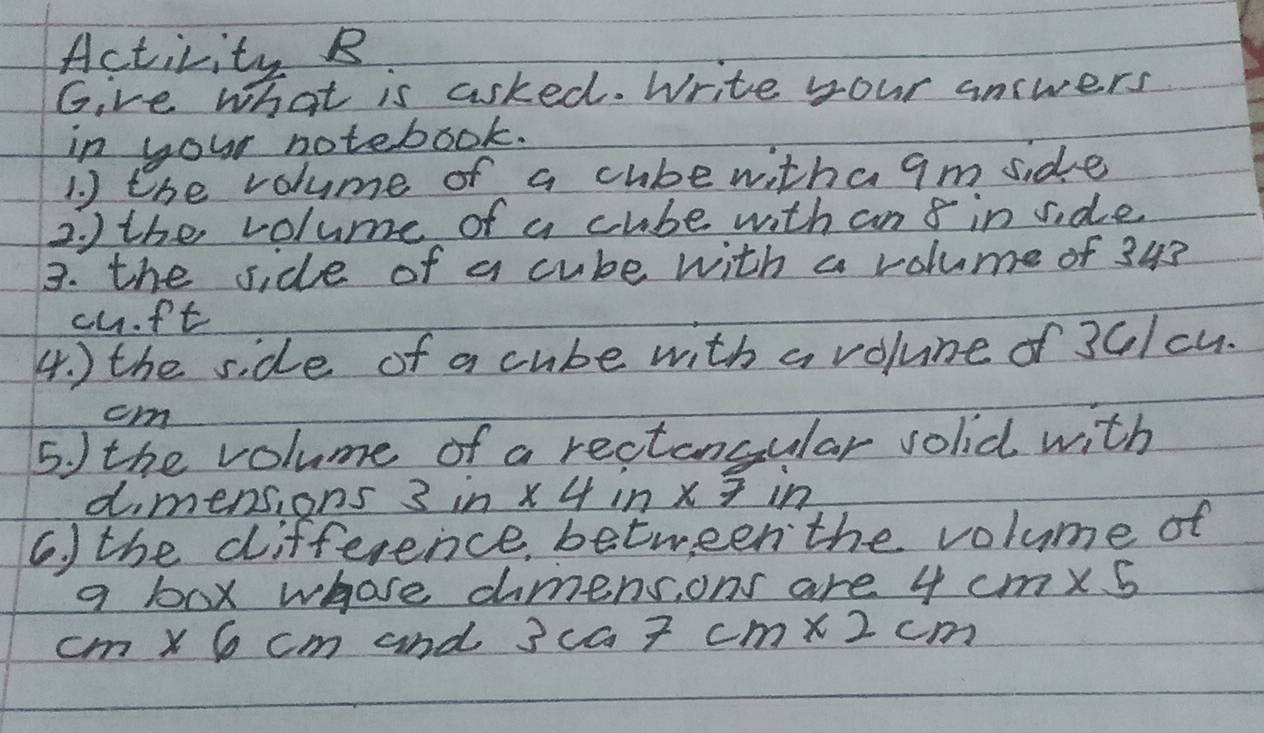 Activity B
Give what is asked. Write your answers
in your notebook.
1.) the volume of a cube with a 9m side
2.) the volume of a cube with an 8 in side
3. the side of a cube with a volume of 343
cu.ft
4.) the side of a cube with a volune of 361 cu.
cm
5.) the volume of a rectangular solid with
dimensions 3 in x 4 in x 7 in
6.) the difference between the volume of
a box whose dimensions are 4 cm x 5
cm x 6 cm and 3 ca 7 cm x 2 cm